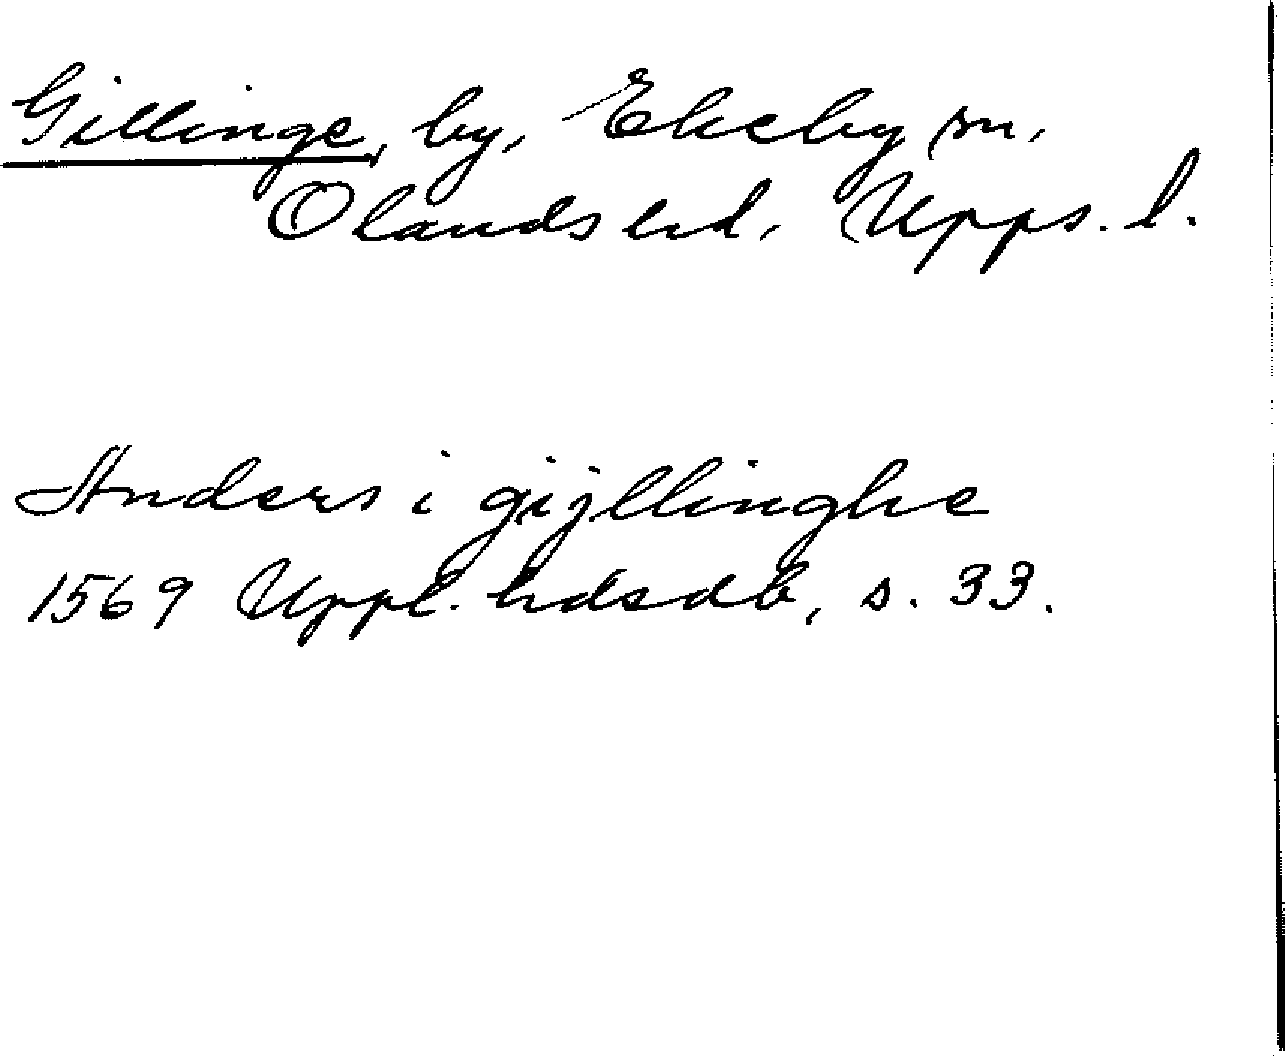 Gillinge, by, Ekeby sn,
Olands hd, Upps. l.
Anders i gijllinghe
1569 Uppl. hdsdb, s. 33.